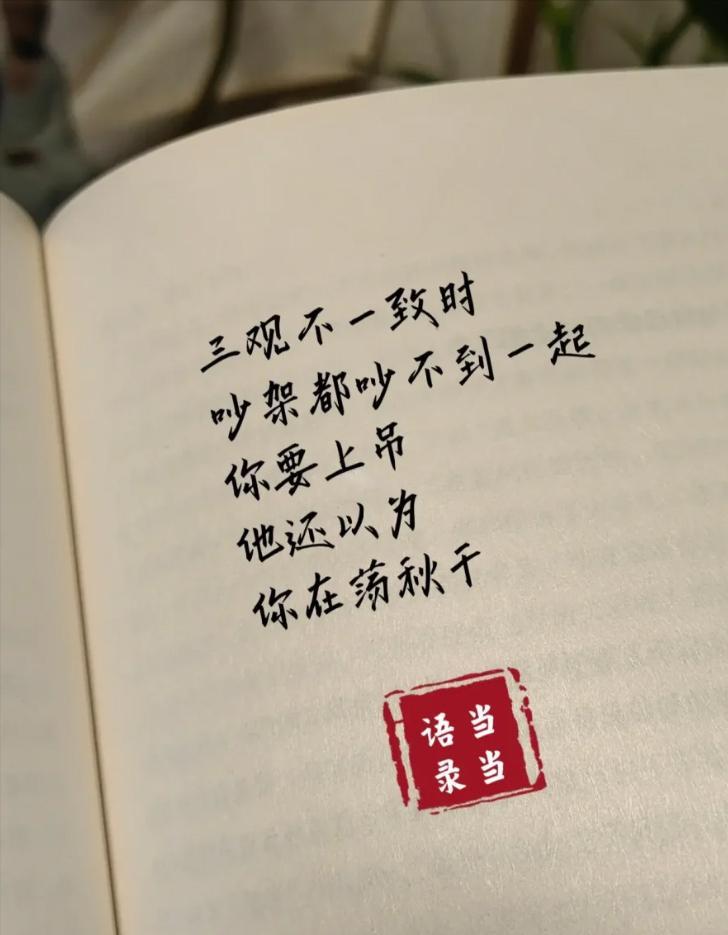 三观不一致时
吵架都吵不到一起
你要上吊
他还以为
你在荡秋千
当当
语录